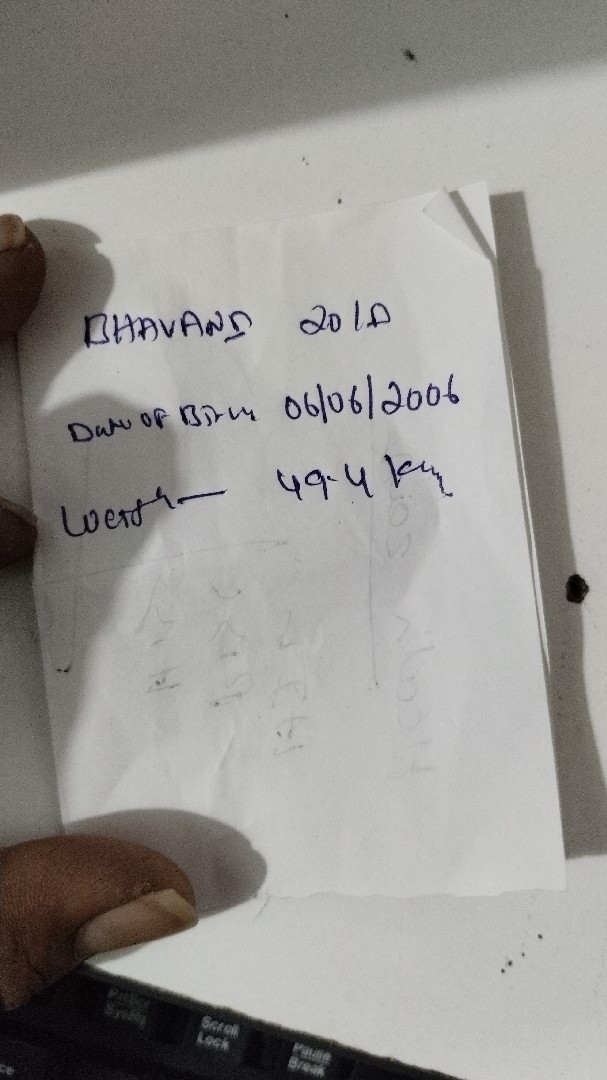 BHAVANI 20/D
Date of Birth 06/06/2006
Weight 49.4 kg
Scroll
Lock
Pause
Break